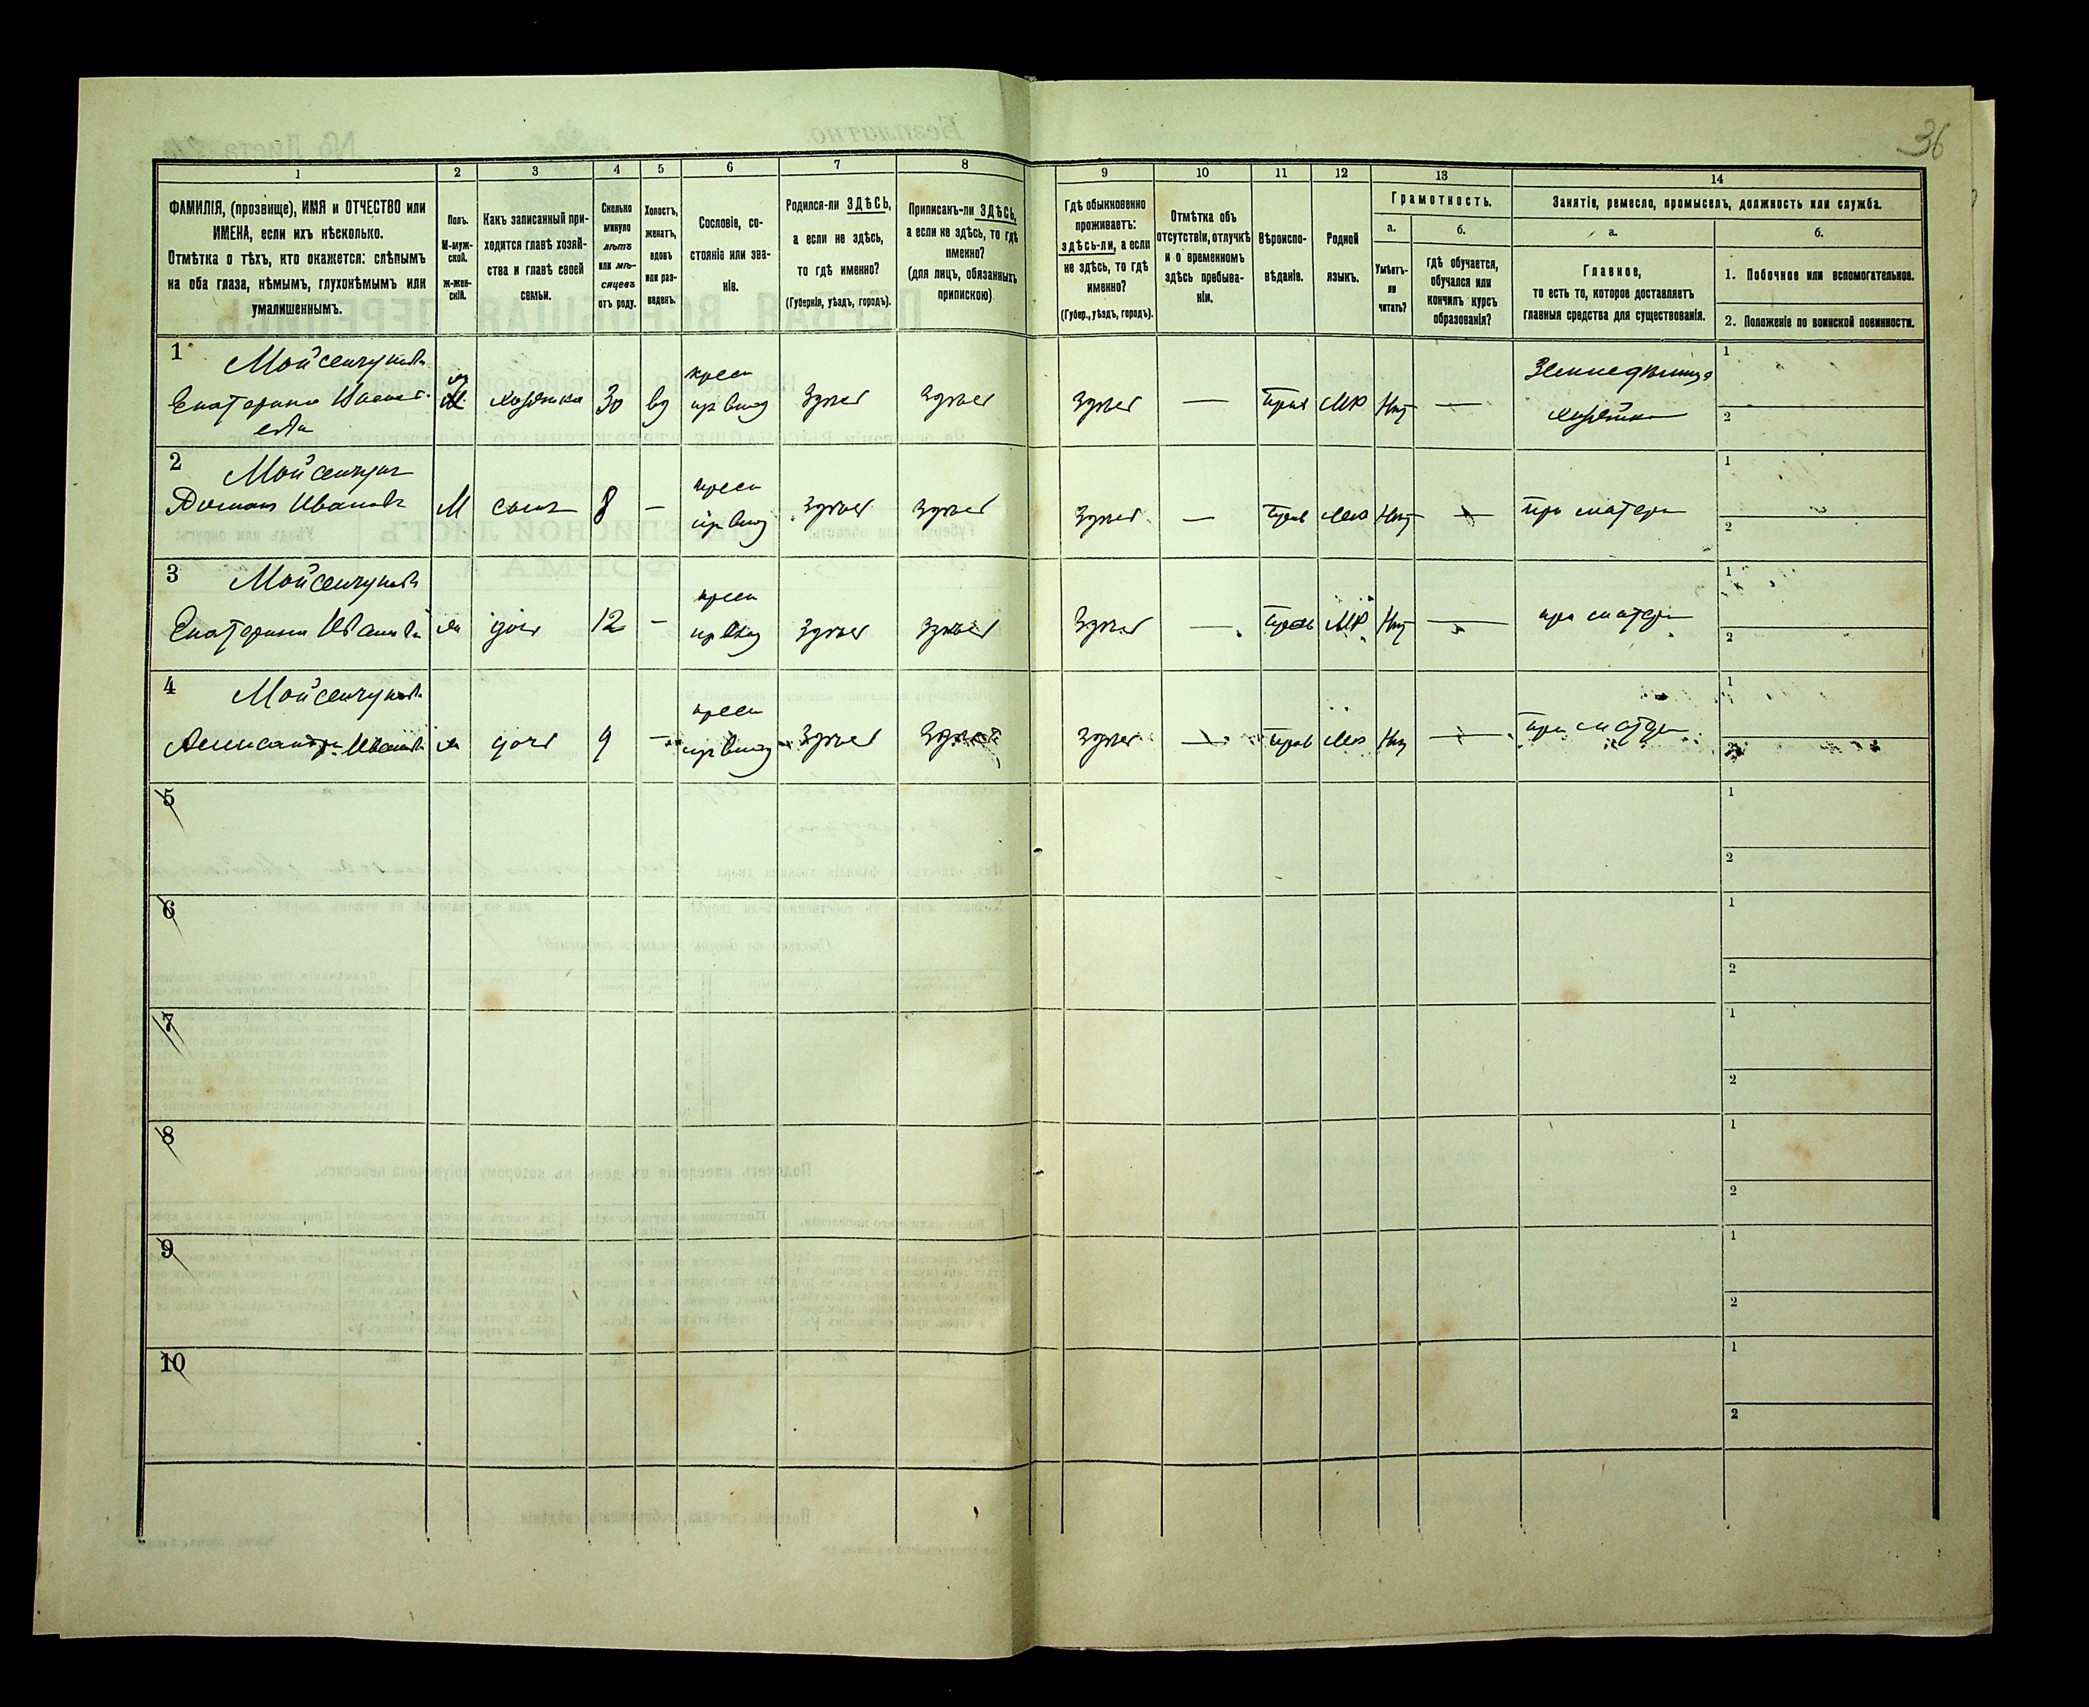 36
1
2
3
4
5
6
7
8
9
10
11
12
13
14
ФАМИЛІЯ, (прозвище), ИМЯ и ОТЧЕСТВО или
ИМЕНА, если ихъ нѣсколько.
Отмѣтка о тѣхъ, кто окажется: слѣпымъ
на оба глаза, нѣмымъ, глухонѣмымъ или
умалишеннымъ.
Полъ.
М-муж-
ской.
ж-жен-
скій.
Какъ записанный при-
ходится главѣ хозяй-
ства и главѣ своей
семьи.
Сколько
минуло
лѣтъ
или мѣ-
сяцевъ
отъ роду.
Холостъ,
женатъ,
вдовъ
или раз-
веденъ.
Сословіе, со-
стояніе или зва-
ніе.
Родился-ли ЗДѢСЬ,
а если не здѣсь,
то гдѣ именно?
(Губернія, уѣздъ, городъ).
Приписанъ-ли ЗДѢСЬ,
а если не здѣсь, то гдѣ
именно?
(для лицъ, обязанныхъ
припискою)
Гдѣ обыкновенно
проживаетъ:
здѣсь-ли, а если
не здѣсь, то гдѣ
именно?
(Губер., уѣздъ, городъ).
Отмѣтка объ
отсутствіи, отлучкѣ
и о временномъ
здѣсь пребыва-
ніи.
Вѣроиспо-
вѣданіе.
Родной
языкъ.
Грамотность.
а.
Умѣетъ-
ли
читать?
б.
гдѣ обучается,
обучался или
кончилъ курсъ
образованія?
Занятіе, ремесло, промыселъ, должность или служба.
а.
Главное,
то есть то, которое доставляетъ
главныя средства для существованія.
б.
1. Побочное или вспомогательное.
2. Положеніе по воинской повинности.
1 Мойсенчукова
Екатерина Иванова
хозяйка 30 вд крест здѣсь здѣсь здѣсь — Прав МР Нѣт — хозяйка
1
2
2 Мойсенчук
Иванов М сын 8 — крест здѣсь здѣсь здѣсь — Прав Мр Нѣт — при матери
1
2
3 Мойсенчукова
Екатерина Иванова дочь 12 — крест здѣсь здѣсь здѣсь — Прав МР Нѣт — при матери
1
2
4 Мойсенчукова
Александра Иванова дочь 9 — крест здѣсь здѣсь здѣсь — Прав Мр Нѣт — при матери
1
2
5
1
2
6
1
2
7
1
2
8
1
2
9
1
2
10
1
2